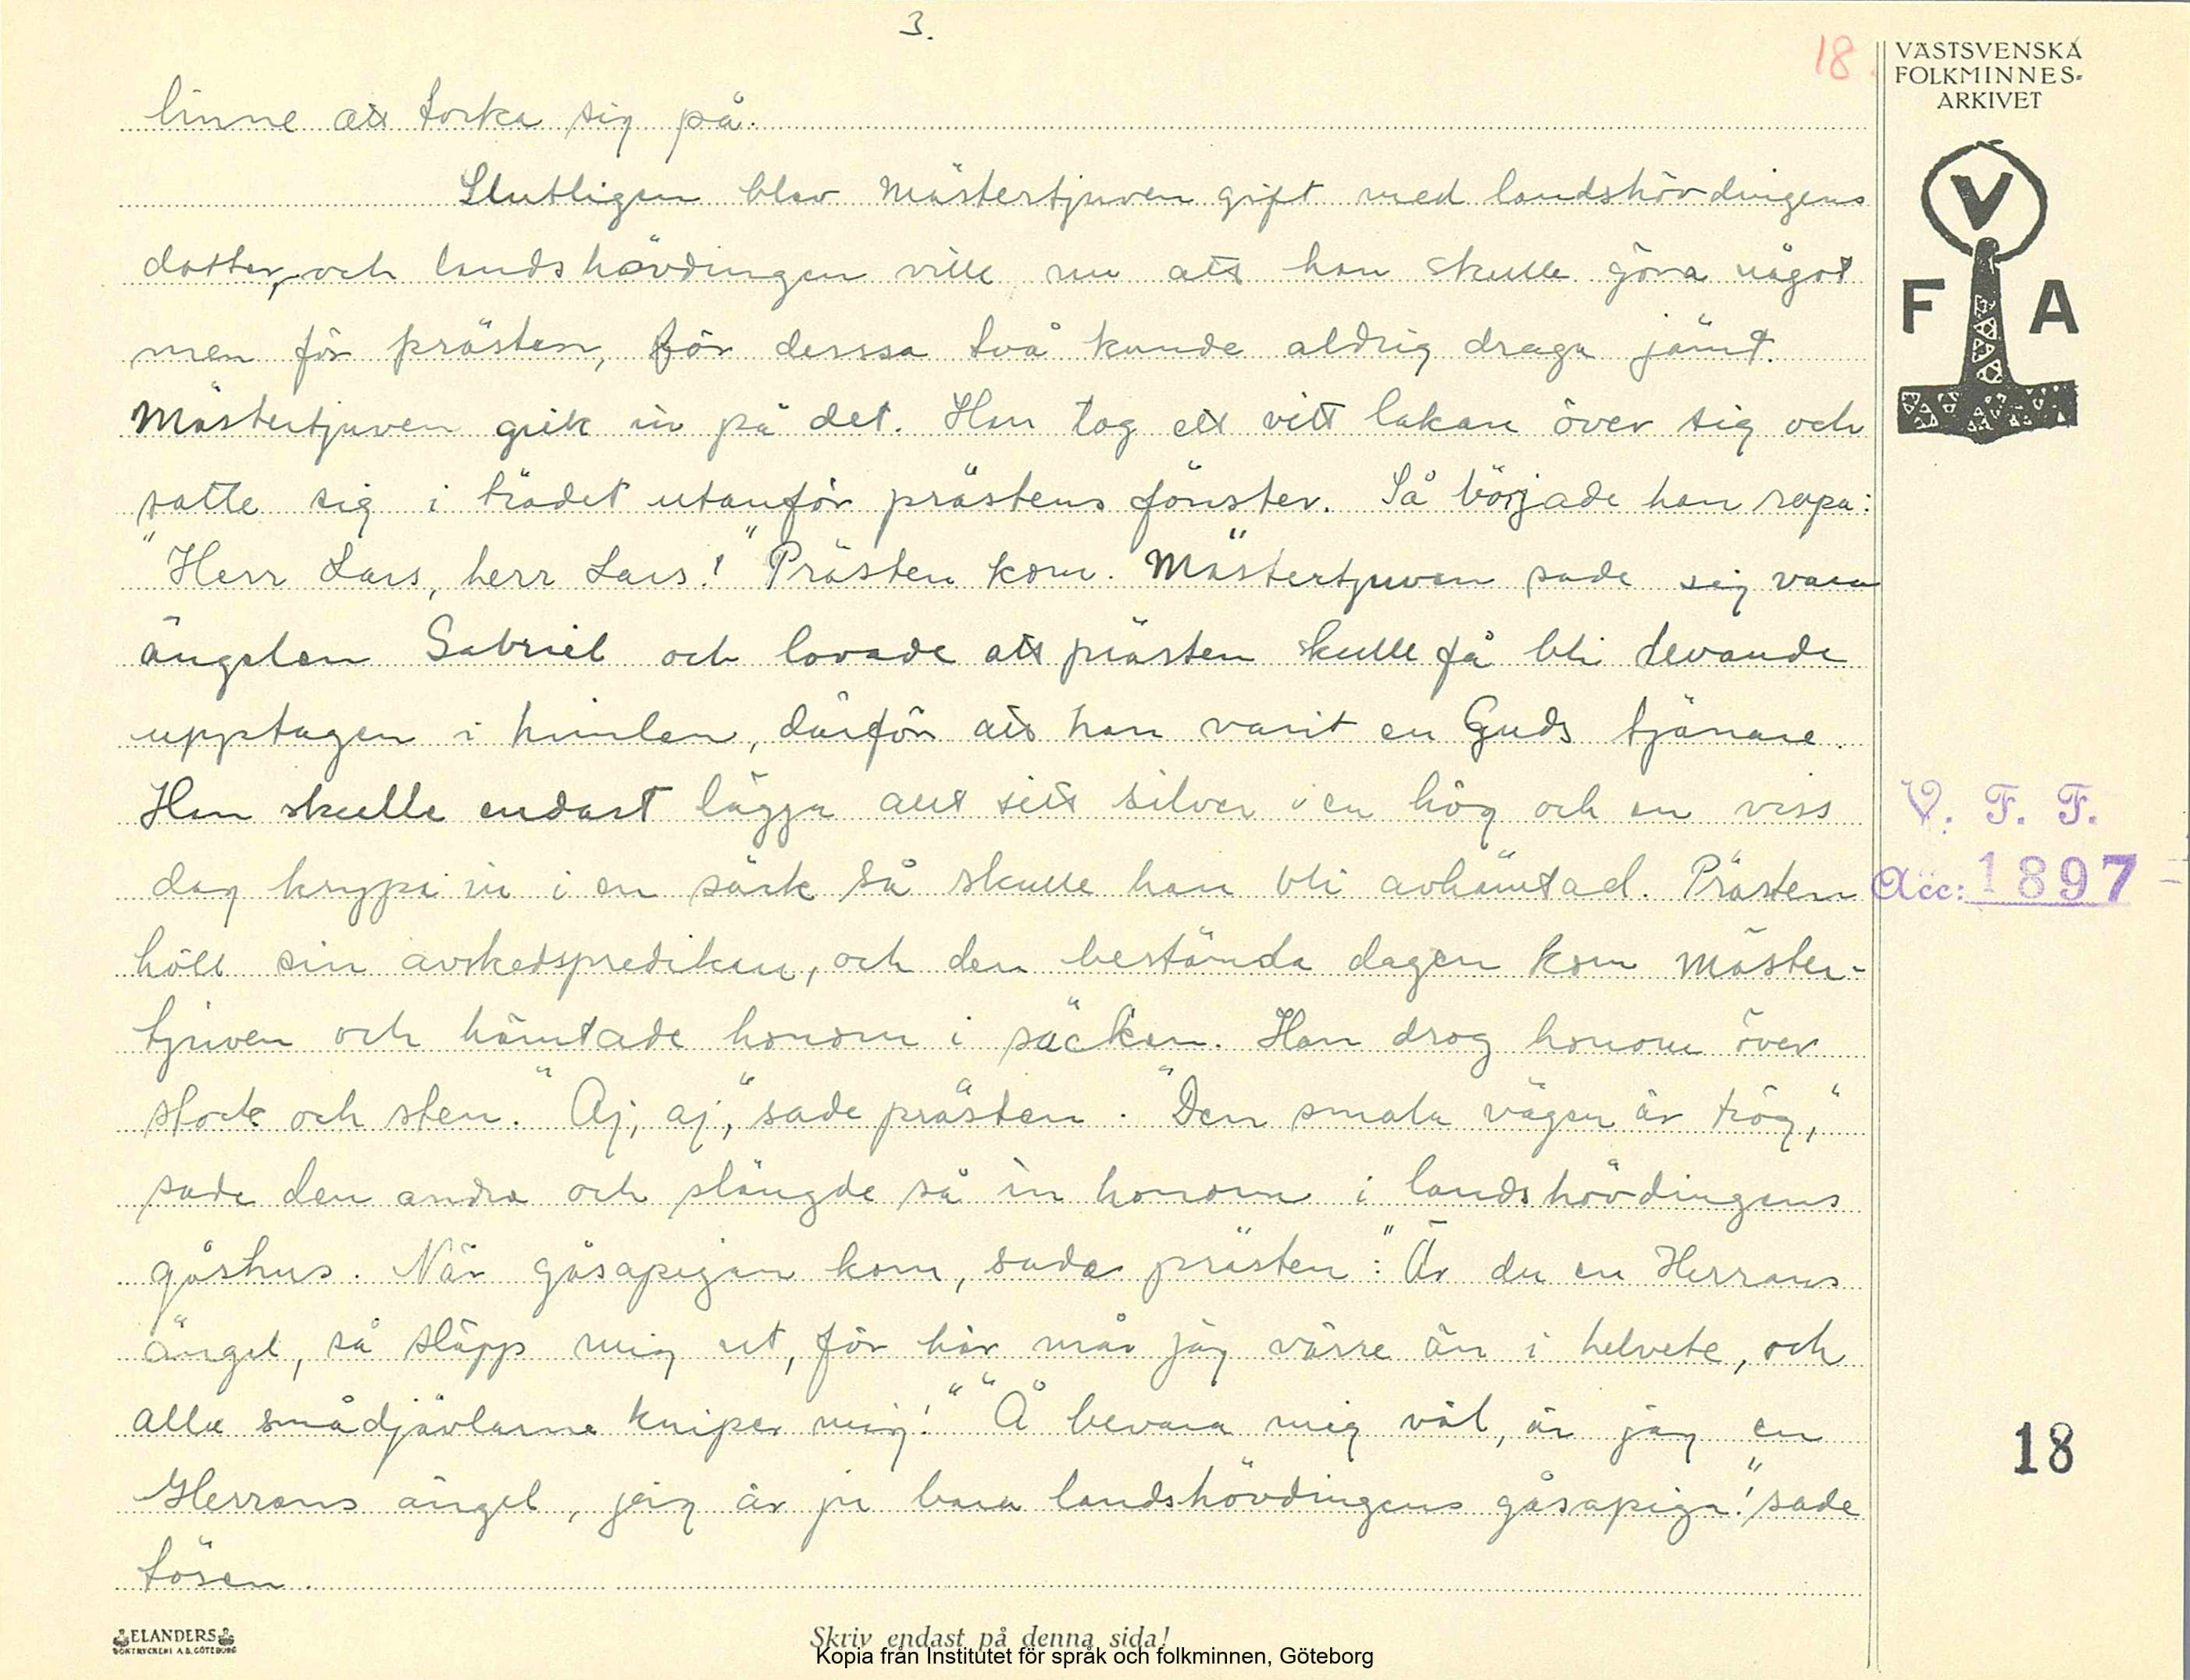 3.
18.
VÄSTSVENSKA
FOLKMINNES-
ARKIVET
V
F A
linne att torka sig på.
Slutligen blev Mästertjuven gift med landshövdingens
dotter, och landshövdingen ville nu att han skulle göra något
men för prästen, för dessa två kunde aldrig draga jämt.
Mästertjuven gick in på det. Han tog ett vitt lakan över sig och
satte sig i trädet utanför prästens fönster. Så började han ropa:
"Herr Lars, herr Lars!" Prästen kom. Mästertjuven sade sig vara
ängelen Gabriel och lovade att prästen skulle få bli levande
upptagen i himlen, därför att han varit en Guds tjänare.
Han skulle endast lägga allt sitt silver i en hög och en viss
dag krypa in i en säck så skulle han bli avhämtad. Prästen
höll sin avskedspredikan, och den bestämda dagen kom Mäster-
tjuven och hämtade honom i säcken. Han drog honom över
stock och sten. "Aj, aj," sade prästen. "Den smala vägen är trög,"
sade den andra och slängde så in honom i landshövdingens
gåshus. När gåsapigan kom, sade prästen: "Är du en Herrans
ängel, så släpp mig ut, för här mår jag värre än i helvete, och
alla smådjävlarna kniper mig!" "Å bevara mig väl, är jag en
Herrans ängel, jag är ju bara landshövdingens gåsapiga!" sade
tösen.
V. F. F.
Acc: 1897
18
ELANDERS
BOKTRYCKERI A.B. GÖTEBORG
Skriv endast på denna sida!
Kopia från Institutet för språk och folkminnen, Göteborg